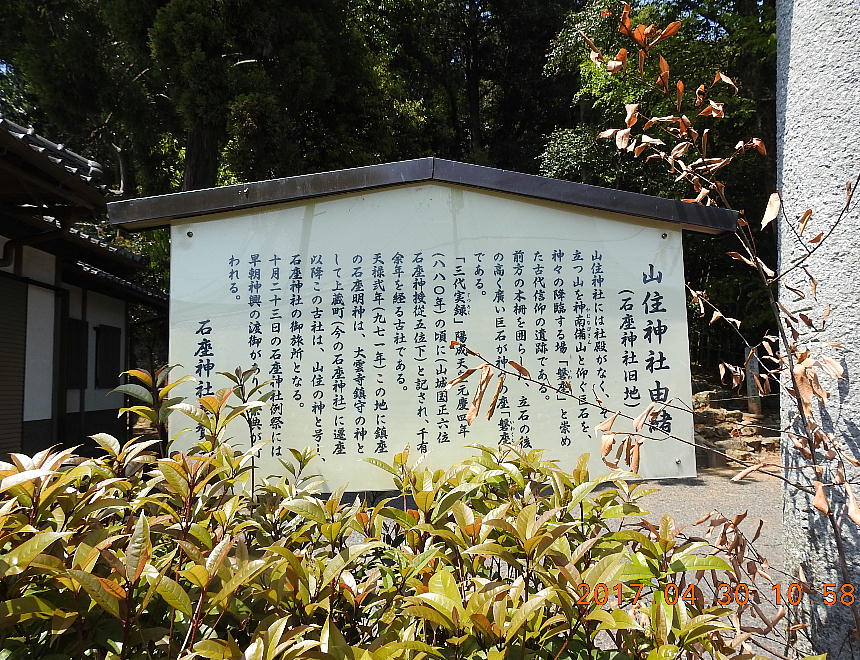 山住神社由緒
(石座神社旧地)
山住神社には社殿がなく、
立つ山を神南備山と仰ぐ巨石を、
神々の降臨する場「磐座」と崇め
た古代信仰の遺跡である。
前方の木柵を囲らし 立石の後
の高く廣い巨石が神 座「磐座
である。
「三代実録」陽成天 元慶四年
(八八〇年)の頃に(山城国正六位
石座神授従五位下)と記され、千有
余年を経る古社である。
天禄弍年(九七一年)この地に鎮座
の石座明神は、大雲寺鎮守の神と
して上蔵町(今の石座神社)に遷座
以降この古社は、山住の神と号し
石座神社の御旅所となる。
十月二十三日の石座神社例祭には
早朝神輿の渡御が 祭典が行
われる。
石座神社
2017 04 30 10 58